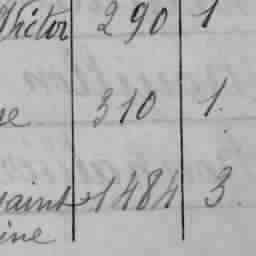 Victor 290 1
310 1.
saint 1484 3.
ine